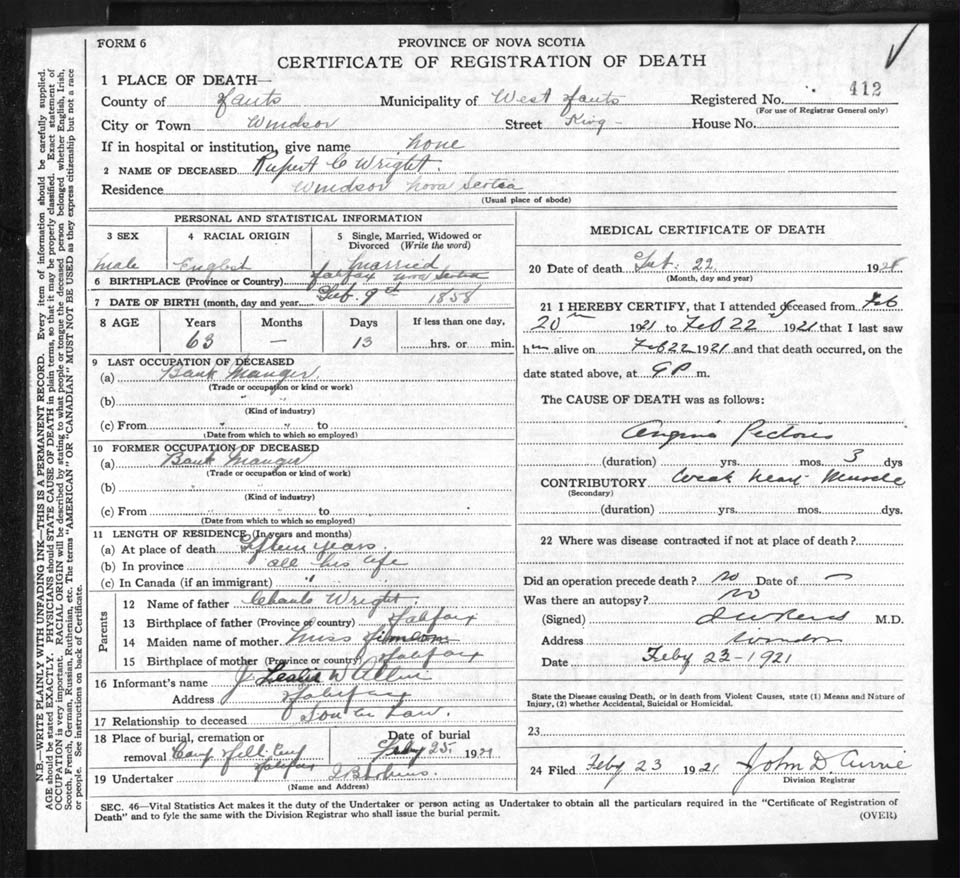 FORM 6
PROVINCE OF NOVA SCOTIA
CERTIFICATE OF REGISTRATION OF DEATH
1 PLACE OF DEATH—
County of Hants Municipality of West Hants Registered No. 412
(For use of Registrar General only)
City or Town Windsor Street King - House No.
If in hospital or institution, give name none
2 NAME OF DECEASED Rupert C Wright.
Residence Windsor Nova Scotia
(Usual place of abode)
PERSONAL AND STATISTICAL INFORMATION
3 SEX 4 RACIAL ORIGIN 5 Single, Married, Widowed or
Divorced (Write the word)
Male English Married
6 BIRTHPLACE (Province or Country) Halifax Nova Scotia
7 DATE OF BIRTH (month, day and year Feb. 9th 1858
8 AGE Years Months Days If less than one day,
63 — 13 hrs. or min.
9 LAST OCCUPATION OF DECEASED
(a) Bank Manger
(Trade or occupation or kind or work)
(b) " "
(Kind of industry)
(c) From " to
(Date from which to which so employed)
10 FORMER OCCUPATION OF DECEASED
(a) Bank Manger
(Trade or occupation or kind of work)
(b) " "
(Kind of industry)
(c) From " to
(Date from which to which so employed)
11 LENGTH OF RESIDENCE (In years and months)
(a) At place of death fifteen years
(b) In province all his life
(c) In Canada (if an immigrant) "
Parents
12 Name of father Charels Wright.
13 Birthplace of father (Province or country) Halifax
14 Maiden name of mother Miss
15 Birthplace of mother (Province or country) Halifax
16 Informant's name J. Leslie W Allen
Address Halifax
17 Relationship to deceased Son in Law.
18 Place of burial, cremation or Date of burial
removal Camp Hill Halifax Feby 25. 1921
19 Undertaker
(Name and Address)
MEDICAL CERTIFICATE OF DEATH
20 Date of death Feb. 22. 1921
(Month, day and year)
21 I HEREBY CERTIFY, that I attended deceased from Feb
20th 1921 to Feb 22 1921 that I last saw
him alive on Feb 22 1921 and that death occurred, on the
date stated above, at 9 P. m.
The CAUSE OF DEATH was as follows:
Angina Pectoris
(duration) yrs. mos. 3 dys
CONTRIBUTORY Weak heart Muscle
(Secondary)
(duration) yrs. mos. dys.
22 Where was disease contracted if not at place of death?
Did an operation precede death? no Date of —
Was there an autopsy? no
(Signed) M.D.
Address Windsor
Date Feby 23 - 1921
State the Disease causing Death, or in death from Violent Causes, state (1) Means and Nature of
Injury, (2) whether Accidental, Suicidal or Homicidal.
23
24 Filed Feby 23 1921 John D. Currie
Division Registrar
SEC. 46—Vital Statistics Act makes it the duty of the Undertaker or person acting as Undertaker to obtain all the particulars required in the "Certificate of Registration of
Death" and to fyle the same with the Division Registrar who shall issue the burial permit.
(OVER)
N.B.—WRITE PLAINLY WITH UNFADING INK—THIS IS A PERMANENT RECORD. Every item of information should be carefully supplied.
AGE should be stated EXACTLY. PHYSICIANS should STATE CAUSE OF DEATH in plain terms, so that it may be properly classified. Exact statement of
OCCUPATION is very important. RACIAL ORIGIN will be described by stating to what people or tongue the deceased person belonged whether English, Irish,
Scotch, French, German, Russian, Ruthenian, etc. The terms "AMERICAN" OR "CANADIAN" MUST NOT BE USED as they express citizenship but not a race
or people. See instructions on back of Certificate.